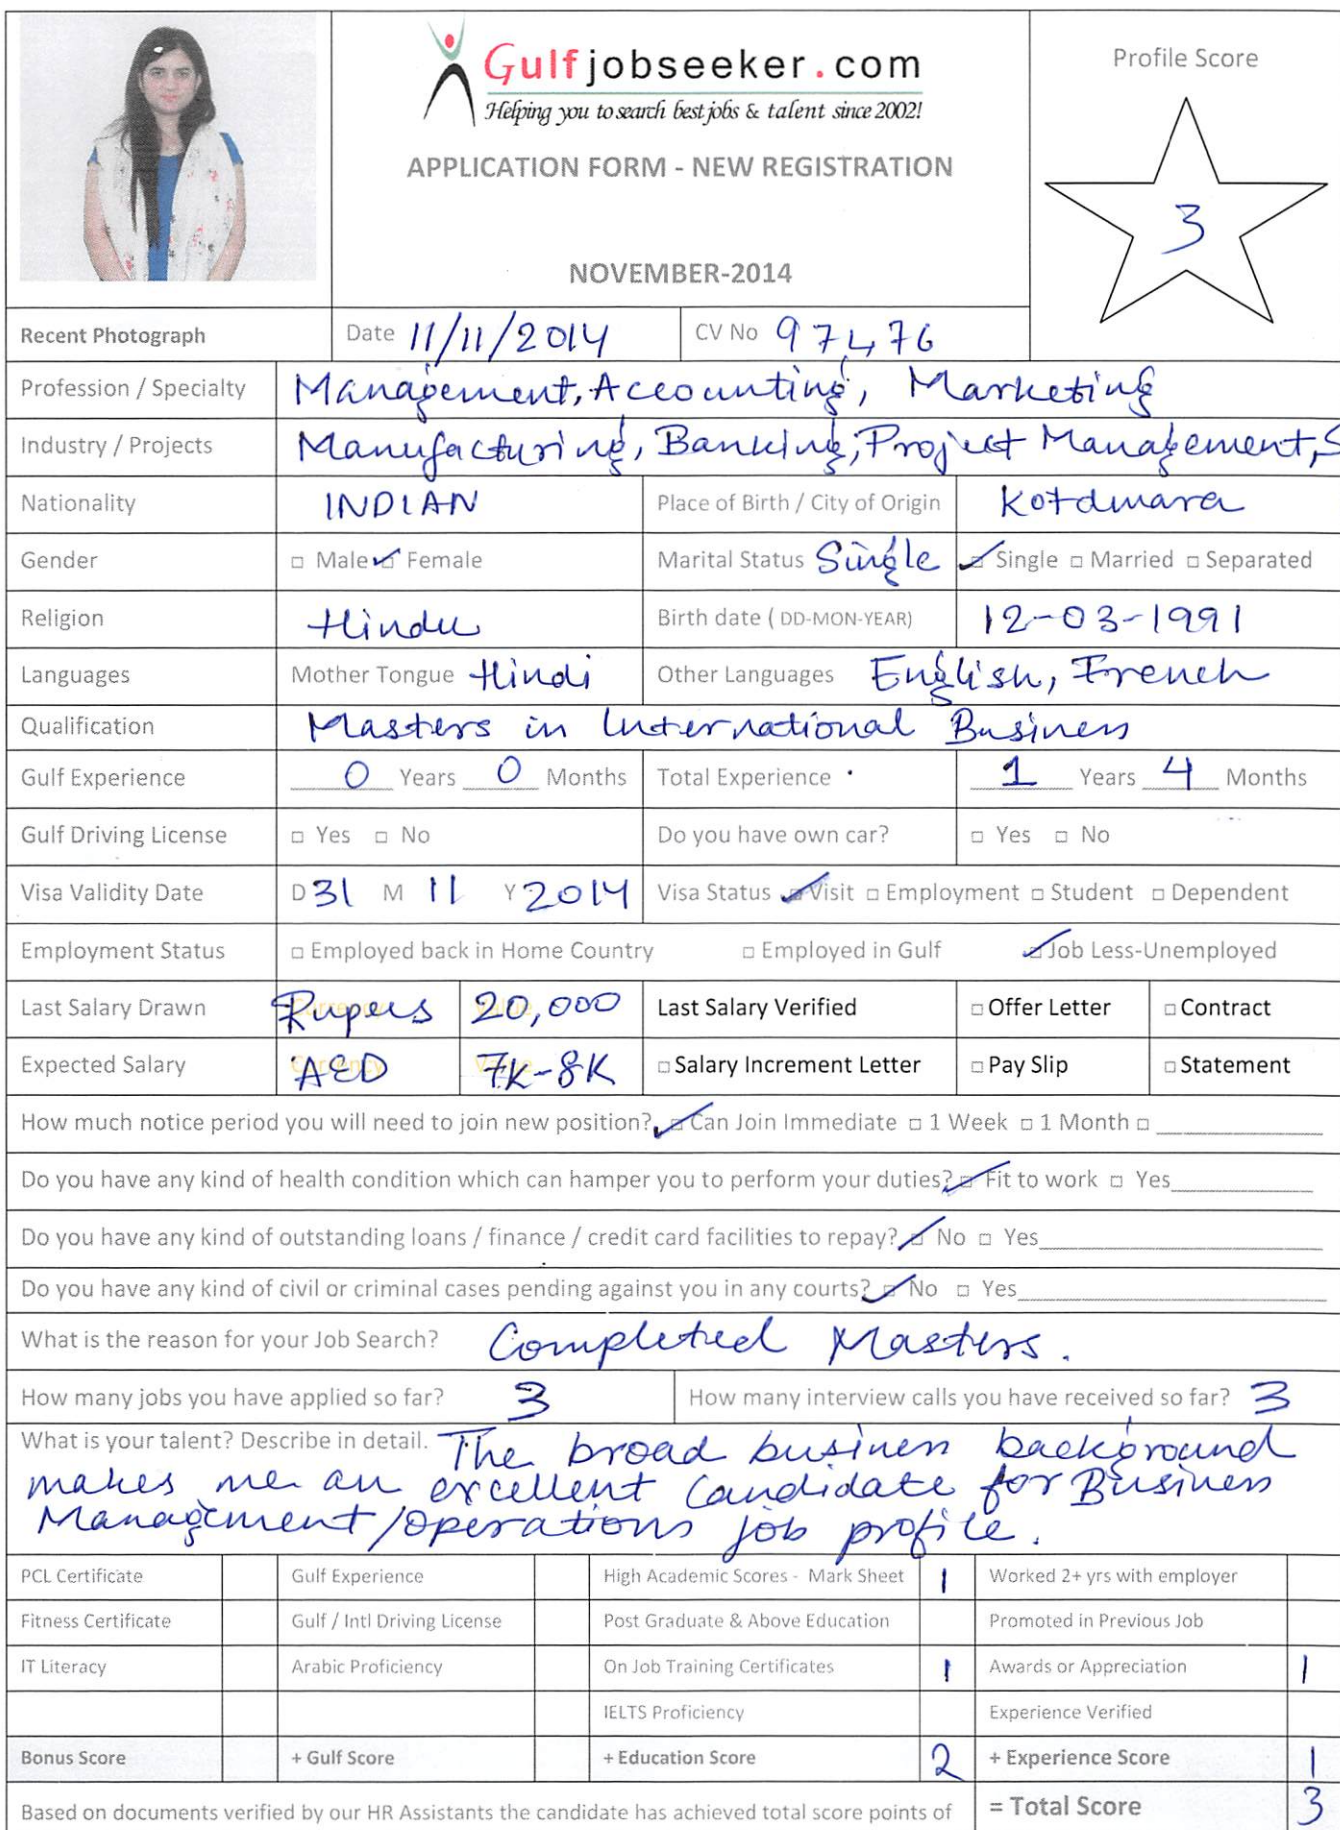 Gulfjobseeker.com
Helping you to search best jobs & talent since 2002!
APPLICATION FORM - NEW REGISTRATION
NOVEMBER-2014
Profile Score
3
Recent Photograph Date 11/11/2014 CV No 97476
Profession / Specialty Management, Accounting, Marketing
Industry / Projects Manufacturing, Banking, Project Management, S
Nationality INDIAN Place of Birth / City of Origin Kotdwara
Gender □ Male ☑ Female Marital Status Single ☑ Single □ Married □ Separated
Religion Hindu Birth date ( DD-MON-YEAR) 12-03-1991
Languages Mother Tongue Hindi Other Languages English, French
Qualification Masters in International Business
Gulf Experience 0 Years 0 Months Total Experience 1 Years 4 Months
Gulf Driving License □ Yes □ No Do you have own car? □ Yes □ No
Visa Validity Date D 31 M 11 Y 2014 Visa Status ☑ Visit □ Employment □ Student □ Dependent
Employment Status □ Employed back in Home Country □ Employed in Gulf ☑ Job Less-Unemployed
Last Salary Drawn Rupees 20,000 Last Salary Verified □ Offer Letter □ Contract
Expected Salary AED 7K-8K □ Salary Increment Letter □ Pay Slip □ Statement
How much notice period you will need to join new position? ☑ Can Join Immediate □ 1 Week □ 1 Month □
Do you have any kind of health condition which can hamper you to perform your duties? ☑ Fit to work □ Yes
Do you have any kind of outstanding loans / finance / credit card facilities to repay? ☑ No □ Yes
Do you have any kind of civil or criminal cases pending against you in any courts? ☑ No □ Yes
What is the reason for your Job Search? Completed Masters.
How many jobs you have applied so far? 3 How many interview calls you have received so far? 3
What is your talent? Describe in detail. The broad business background
makes me an excellent candidate for Business
Management/operations job profile.
PCL Certificate Gulf Experience High Academic Scores - Mark Sheet 1 Worked 2+ yrs with employer
Fitness Certificate Gulf / Intl Driving License Post Graduate & Above Education Promoted in Previous Job
IT Literacy Arabic Proficiency On Job Training Certificates 1 Awards or Appreciation 1
IELTS Proficiency Experience Verified
Bonus Score + Gulf Score + Education Score 2 + Experience Score 1
Based on documents verified by our HR Assistants the candidate has achieved total score points of = Total Score 3